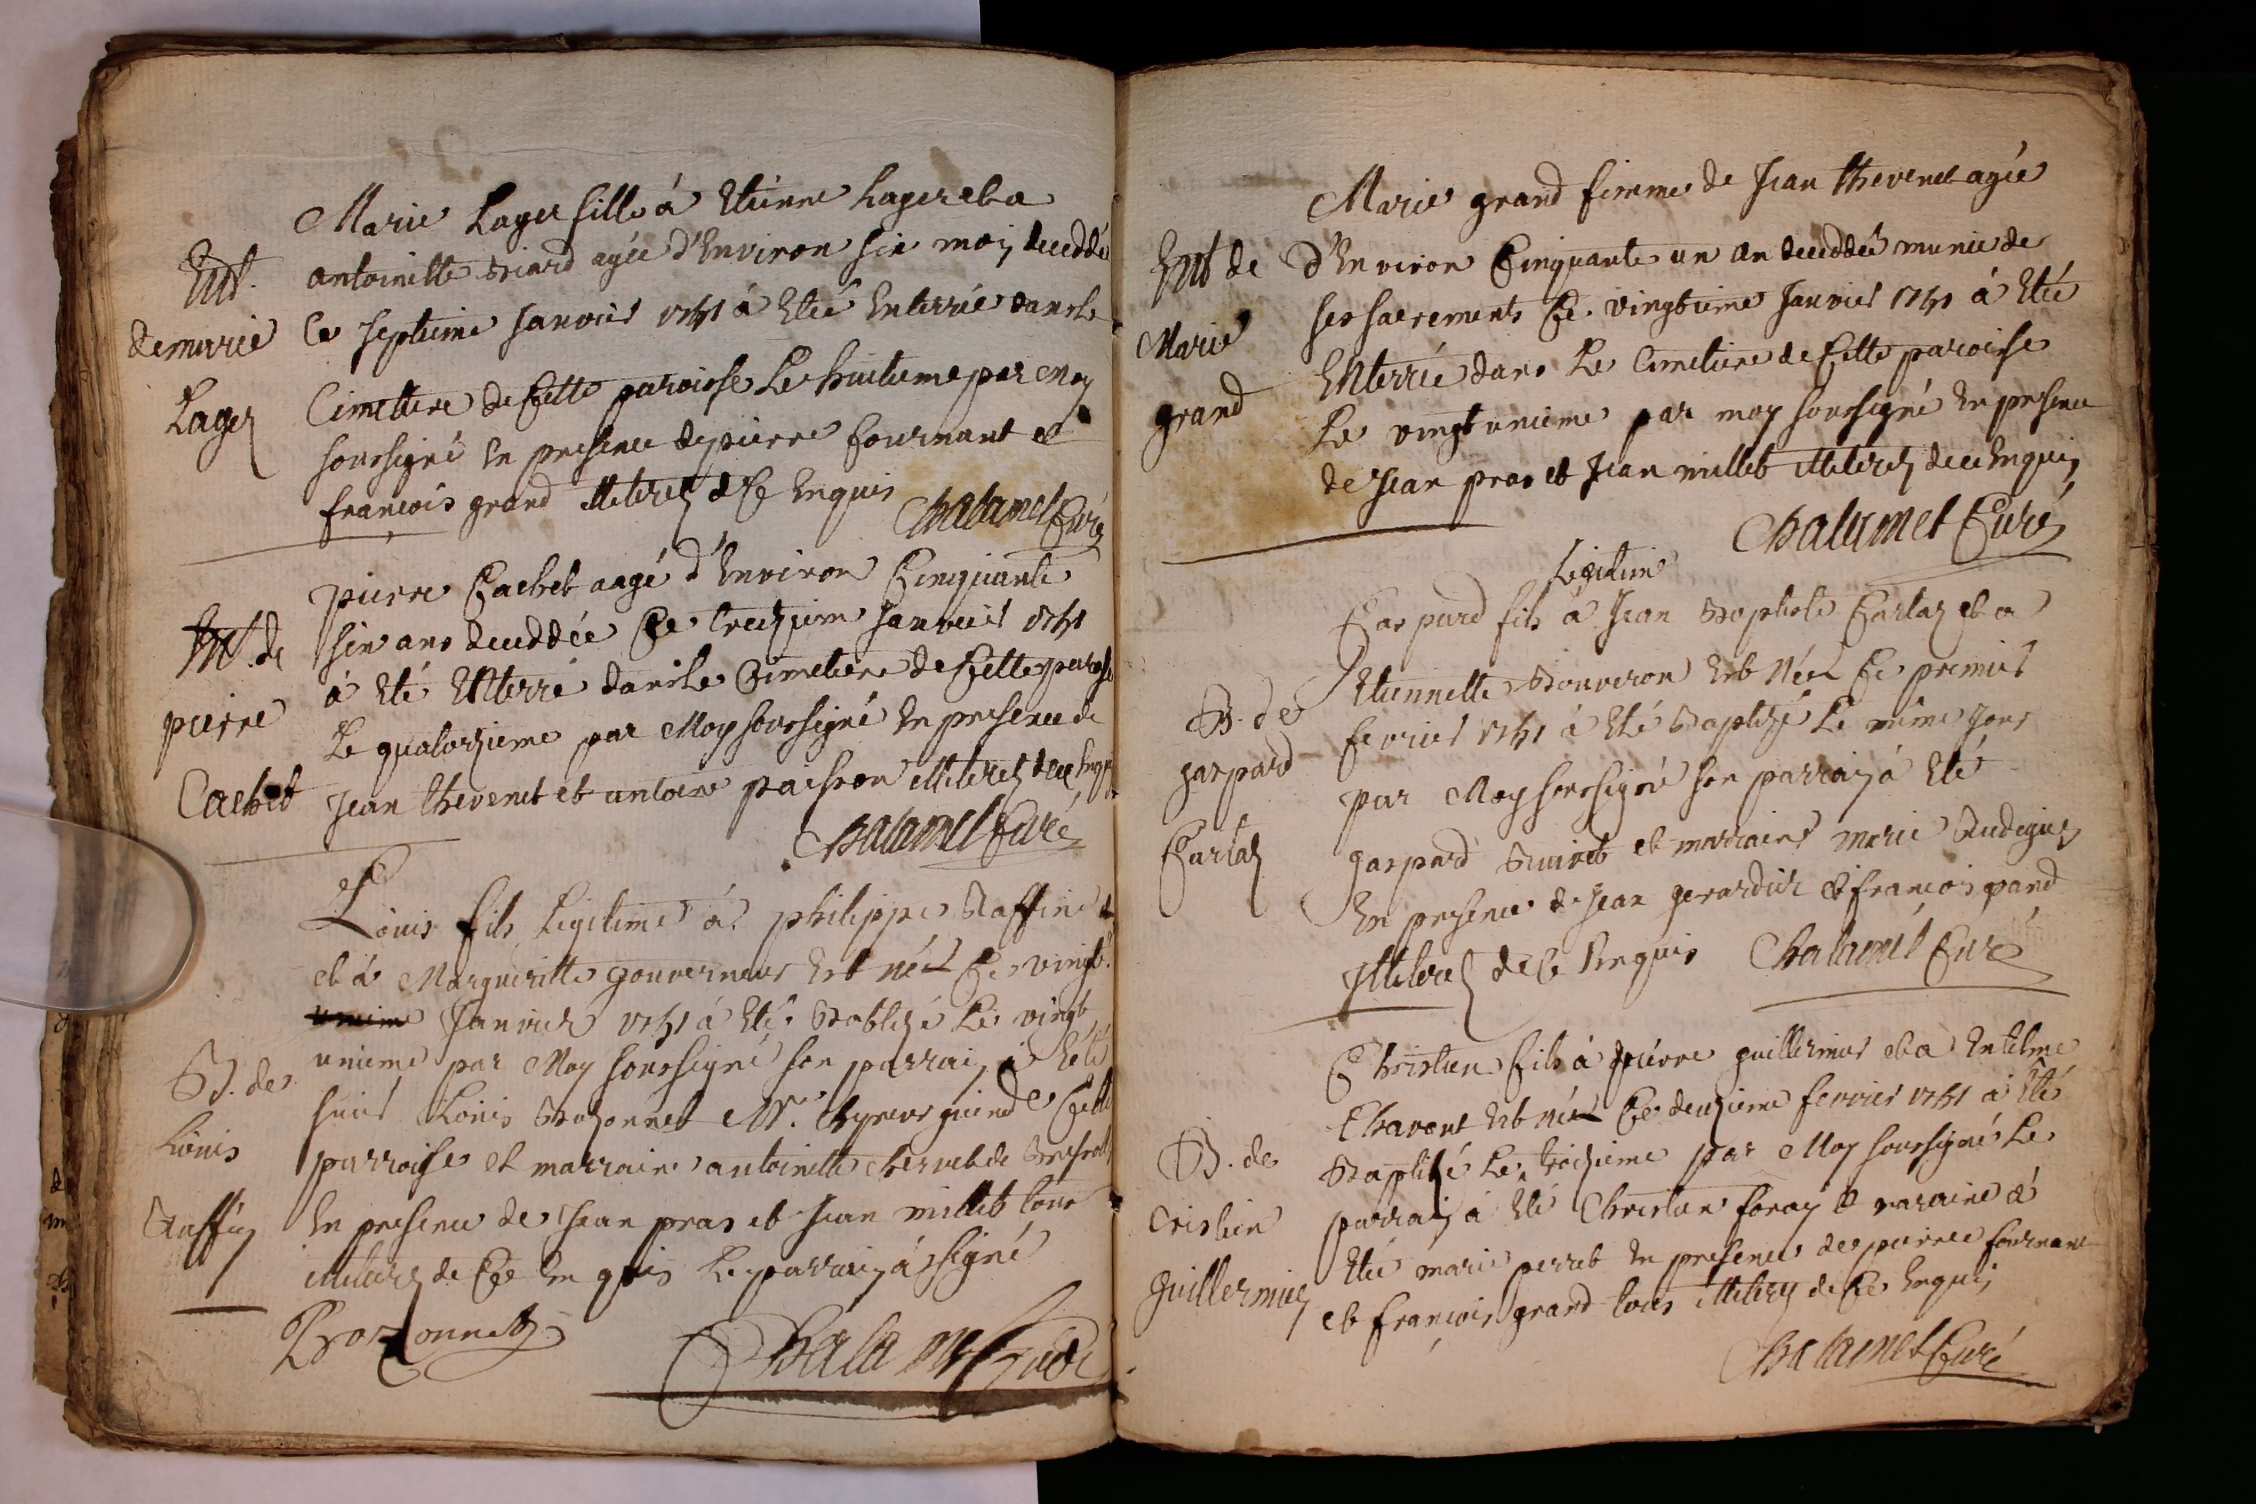 Ent.
de marie
Lager
Marie Lager fille á Etienne Lager et a
antoinette Biard agée d'Environ six moy deceddée
Ce septieme Janvier 1751 á Eteé Enterrée dans le
Cimettiere de Cette paroisse Le huitieme par Moy
soussigné En presence de pierre fournant et
francois grand illiterez de Ce Enquis
Chalamel Curé
Ent. de
pierre
Cachet
pierre Cachet aagé d'Environ Cinquante
six ans deceddée Ce treizieme Janvier 1751
á Eté Enterré dans Le Cimetiere de Cette paroisse
Le quatorzieme par Moy soussigné En presence de
Jean thevenet et antoine paisson illiterez de ce Enquis
Chalamel Curé
B. de
Louis
Raffin
Louis fils Legitime á philippe Raffin
et á Margueritte gouverneur Est néé Ce vingt
Janvier 1751 á Eté Babtizé Le vingt
unieme par Moy soussigné son parrain á Eté
sieur Louis Bozonnet Mr. de Cette
parroisse et marraine antoinette
En presence de Jean pras et Jean millet tous
illiterez de Ce Enquis Le parrain á signé
Bozonnet
Chalamel Curé
Ent de
Marie
grand
Marie grand femme de Jean thevenet agée
d'Environ Cinquante un an deceddée munie de
ses sacrements Ce vingtieme Janvier 1751 á Eteé
Enterrée dans Le Cimetiere de Cette paroisse
Le vingt unieme par moy soussigné En presence
de Jean pras et Jean millet illiterez de ce Enquis
Chalamel Curé
B. de
gaspard
Curtaz
Legitime
Gaspard fils á Jean Baptiste Curtaz et a
Etiennette Bouveron Est néé Ce premier
fevrier 1751 á Eté Baptizé Le même jour
par Moy soussigné son parrain á Eté
gaspard et marraine marie
En presence de Jean gerardier et francois pand
Illiterez de Ce Enquis Chalamel Curé
B. de
Cristien
Guillermier
Christien fils á pierre guillermier et a Entelme
Chavent Est néé Ce deuzieme fevrier 1751 á Eté
Baptizé Le troizieme par Moy soussigné Le
parrain á Eté Christian foray et maraine á
Eteé marie perret En presence de pierre fournant
et francois grand tous illiterez de Ce Enquis
Chalamel Curé